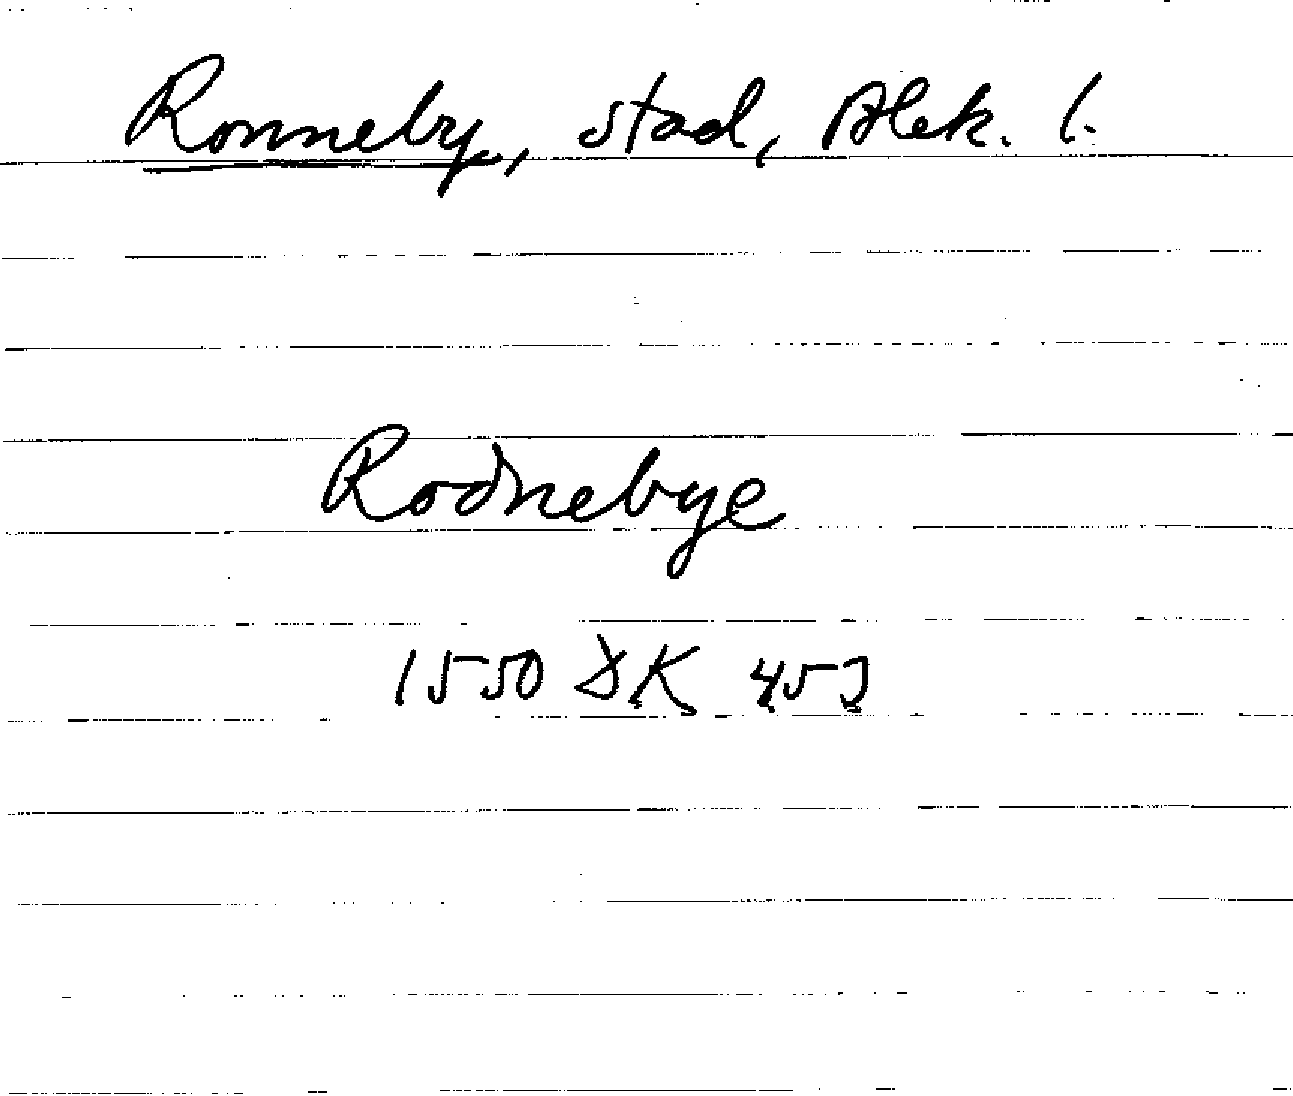 Ronneby, stad, Blek. l.
Rodnebye
1550 DK 453